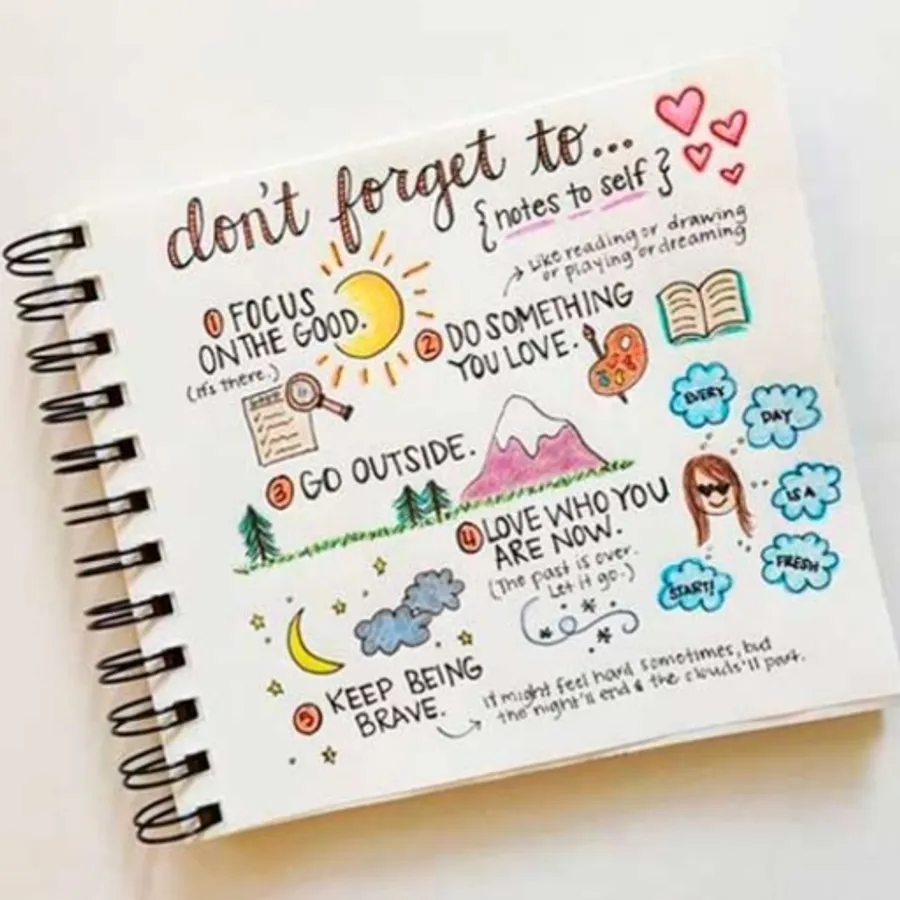 don't forget to...
{ notes to self }
1 FOCUS
ON THE GOOD.
(it's there.)
2 DO SOMETHING
YOU LOVE.
Like reading or drawing
or playing or dreaming
3 GO OUTSIDE.
4 LOVE WHO YOU
ARE NOW.
(The past is over.
Let it go.)
EVERY
DAY
IS A
FRESH
START!
5 KEEP BEING
BRAVE.
it might feel hard sometimes, but
the night'll end & the clouds'll part.